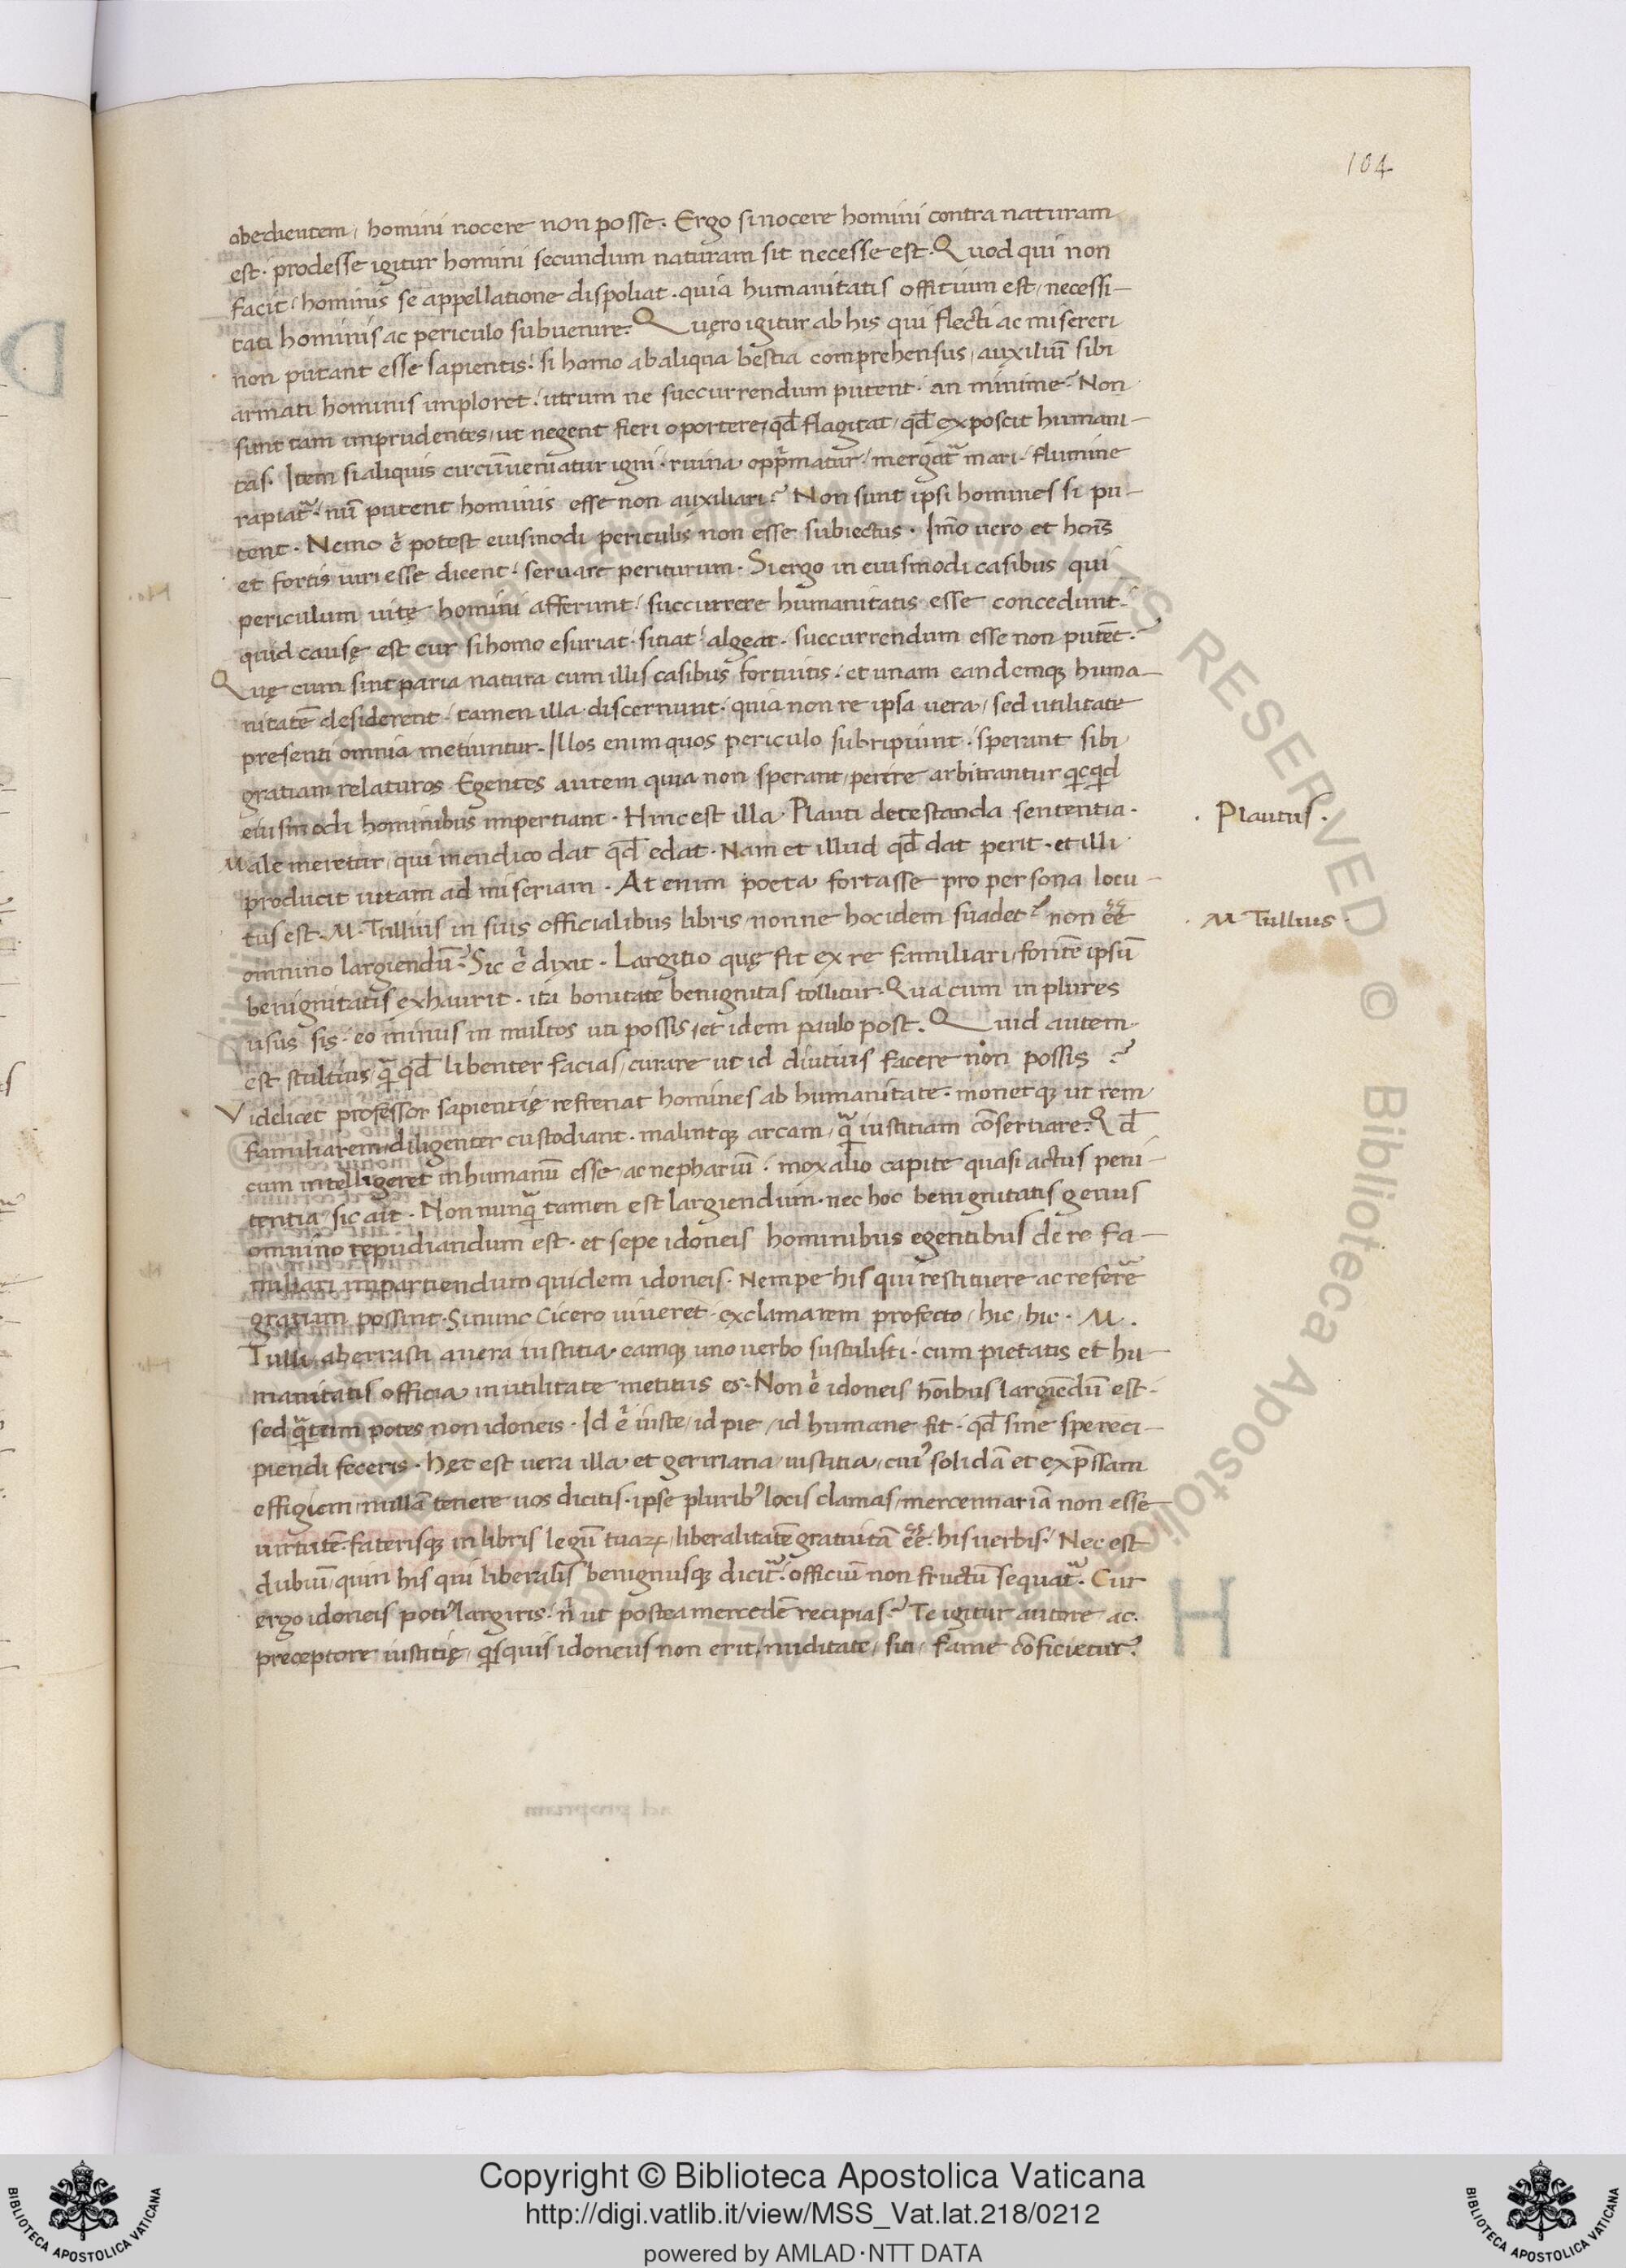 104
obedientem, homini nocere non posse. Ergo si nocere homini contra naturam
est. prodesse igitur homini secundum naturam sit necesse est. Quod qui non
facit, hominis se appellatione dispoliat. quia humanitatis offitium est, necessi-
tati hominis ac periculo subuenire. Quęro igitur ab his qui flecti ac misereri
non putant esse sapientis. si homo ab aliqua bestia comprehensus, auxiliū sibi
armati hominis imploret. utrum ne succurrendum putent. an minime? Non
sunt tam imprudentes, ut negent fieri oportere, qd̄ flagitat, qd̄ exposcit humani-
tas. Item si aliquis circūueniatur igni. ruina opp̄matur. mergat᷑ mari. flumine
rapiat᷑. nū putent hominis esse non auxiliari? Non sunt ipsi homines si pu-
tent. Nemo .n. potest eiusmodi periculis non esse subiectus. Im̄o uero et hoīs
et fortis uiri esse dicent. seruare periturum. Si ergo in eiusmodi casibus qui
periculum uitę homini afferunt. succurrere humanitatis esse concedunt.
quid causę est cur si homo esuriat. sitiat. algeat. succurrendum esse non putēt?
Quę cum sint paria natura cum illis casibus fortuitis. et unam eandemq; huma-
nitatē desiderent. tamen illa discernunt. quia non re ipsa uera, sed utilitate
presenti omnia metiuntur. Illos enim quos periculo subripiunt. sperant sibi
gratiam relaturos Egentes autem quia non sperant, perire arbitrantur qcqd
eiusmodi hominibus impertiant. Hinc est illa Plauti detestanda sententia.
Male meretur, qui mendico dat qd̄ edat. Nam et illud qd̄ dat perit. et illi
producit uitam ad miseriam. At enim poeta fortasse pro persona locu-
tus est. M. Tullius in suis officialibus libris, nonne hoc idem suadet? non ēē
omnino largiendū? Sic .n. dixit. Largitio quę fit ex re familiari, fontē ipsū
benignitatis exhaurit. ita bonitate benignitas tollitur. Qua cum in plures
usus sis. eo minus in multos uti possis, et idem paulo post. Quid autem
est stultius, q̄ qd̄ libenter facias, curare ut id diutius facere non possis?
Videlicet professor sapientię refrenat homines ab humanitate. monetq; ut rem
familiarem diligenter custodiant. malintq; arcam, q̄ iustitiam cōseruare. Qd̄
cum intelligeret inhumanū esse ac nephariū. mox alio capite quasi actus peni-
tentia sic ait. Non nunq̄ tamen est largiendum. nec hoc benignitatis genus
omnino repudiandum est. et sepe idoneis hominibus egentibus de re fa-
miliari impartiendum quidem idoneis. Nempe his qui restituere ac referre
gratiam possint. Si nunc Cicero uiueret. exclamarem profecto, hic, hic. M.
Tulli aberrasti a uera iustitia. eamq; uno uerbo sustulisti. cum pietatis et hu-
manitatis officia in utilitate metitus es. Non .n. idoneis hoībus largiēdū est.
sed q̄tum potes non idoneis. Id .n. iuste, id pie, id humane fit. qd̄ sine spe reci-
piendi feceris. Hęc est uera illa et germana iustitia, cui᷒ solidā et exp̄ssam
effigiem, nullā tenere uos dicitis. ipse plurib᷒ locis clamas, mercennariā non esse
uirtutē. faterisq; in libris legū tuaꝝ, liberalitatē gratuitā ēē. his uerbis. Nec est
dubiū, quin his qui liberalis benignusq; dicit᷑. officiū non fructū sequat᷑. Cur
ergo idoneis poti᷒ largiris. n̄ ut postea mercedē recipias? Te igitur autore ac
preceptore iustitię, qsquis idoneus non erit, nuditate, siti, fame cōficietur?
. Plautus .
. M Tullius .
H
D
Copyright © Biblioteca Apostolica Vaticana
http://digi.vatlib.it/view/MSS_Vat.lat.218/0212
powered by AMLAD·NTT DATA
BIBLIOTECA APOSTOLICA VATICANA
BIBLIOTECA APOSTOLICA VATICANA